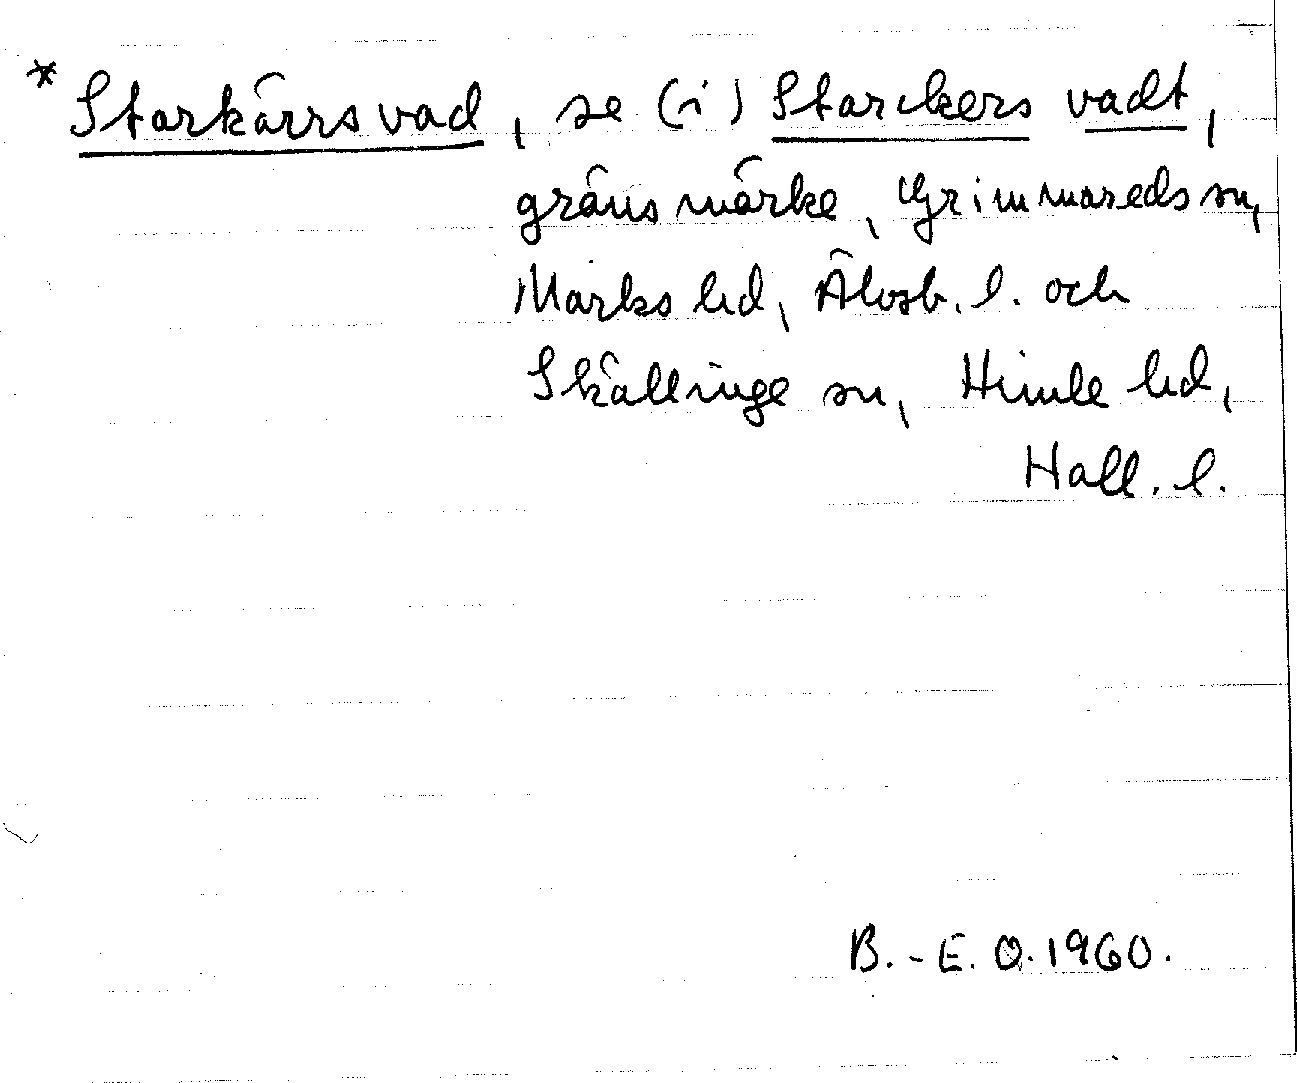 * Starkärrsvad, se (i) Starckers vadt,
gränsmärke, Grimmareds sn,
Marks hd, Älvsb. l. och
Skällinge sn, Himle hd,
Hall. l.
B.-E. O. 1960.